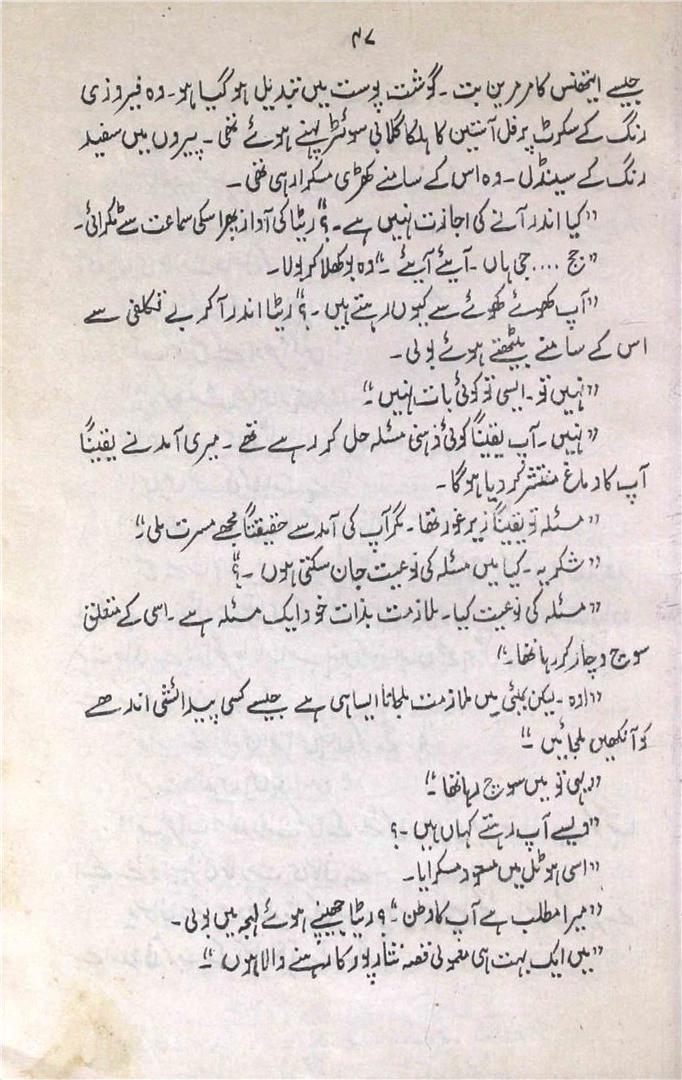 ۴۷
جیسے ایتھنس کا مرمرین بت ۔ گوشت پوست میں تبدیل ہو گیا ہو۔ وہ فیروزی
رنگ کے سکرٹ پر فل آستین کا ہلکا گلابی سوئٹر پہنے ہوئے تھی ۔ پیروں میں سفید
رنگ کے سینڈل ۔ وہ اس کے سامنے کھڑی مسکرا رہی تھی ۔
”کیا اندر آنے کی اجازت نہیں ہے۔؟“ ریٹا کی آواز پھر اسکی سماعت سے ٹکرائی۔
”جج .... جی ہاں ۔ آیئے آیئے ۔“ وہ بوکھلا کر بولا۔
”آپ کھوئے کھوئے سے کیوں رہتے ہیں ۔؟“ ریٹا اندر آکر بے تکلفی سے
اس کے سامنے بیٹھتے ہوئے بولی۔
”نہیں تو ۔ ایسی تو کوئی بات نہیں ۔“
”نہیں ۔ آپ یقیناً کوئی ذہنی مسئلہ حل کر رہے تھے ۔ میری آمد نے یقیناً
آپ کا دماغ منتشر کر دیا ہوگا ۔
”مسئلہ تو یقیناً زیر غور تھا ۔ مگر آپ کی آمد سے حقیقتاً مجھے مسرت ملی ۔“
”شکریہ ۔ کیا میں مسئلہ کی نوعیت جان سکتی ہوں ۔؟“
”مسئلہ کی نوعیت کیا ۔ ملازمت بذات خود ایک مسئلہ ہے ۔ اسی کے متعلق
سوچ وچار کر رہا تھا ۔“
”اوہ ۔ لیکن بمبئی میں ملازمت ملجانا ایسا ہی ہے جیسے کسی پیدائشی اندھے
کو آنکھیں ملجائیں ۔“
”یہی تو میں سوچ رہا تھا ۔“
”ویسے آپ رہتے کہاں ہیں ۔؟
”اسی ہوٹل میں مسعود مسکرایا۔
”میرا مطلب ہے آپ کا وطن ۔“؟ ریٹا جھینپے ہوئے لہجہ میں بولی ۔
”میں ایک بہت ہی معمولی قصبہ نثار پور کا رہنے والا ہوں ۔“